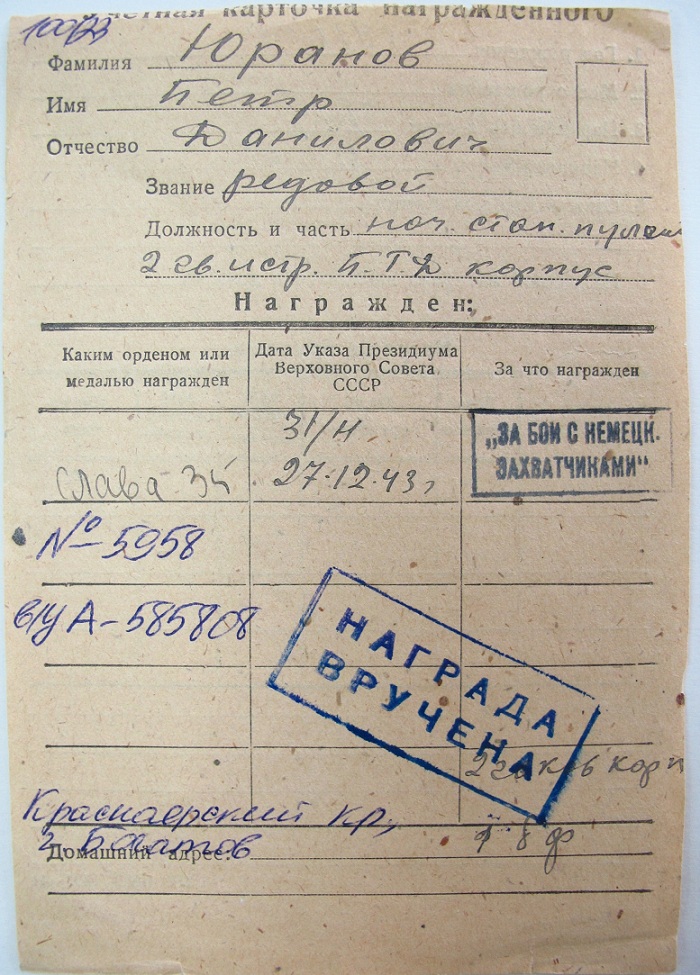 100/23
Учетная карточка награжденного
Фамилия Юранов
Имя Петр
Отчество Данилович
Звание редовой
Должность и часть ноч. стан. пулем
2 гв. истр. П.Т.Д корпус
Награжден:
Каким орденом или медалью награжден
Дата Указа Президиума Верховного Совета СССР
За что награжден
Слава 3й
31/н
27.12.43г
„ЗА БОИ С НЕМЕЦК. ЗАХВАТЧИКАМИ“
№ 5958
в/у А-585808
НАГРАДА
ВРУЧЕНА
2 гв кав корп
Красноярский кр,
г. Боготов
Домашний адрес: